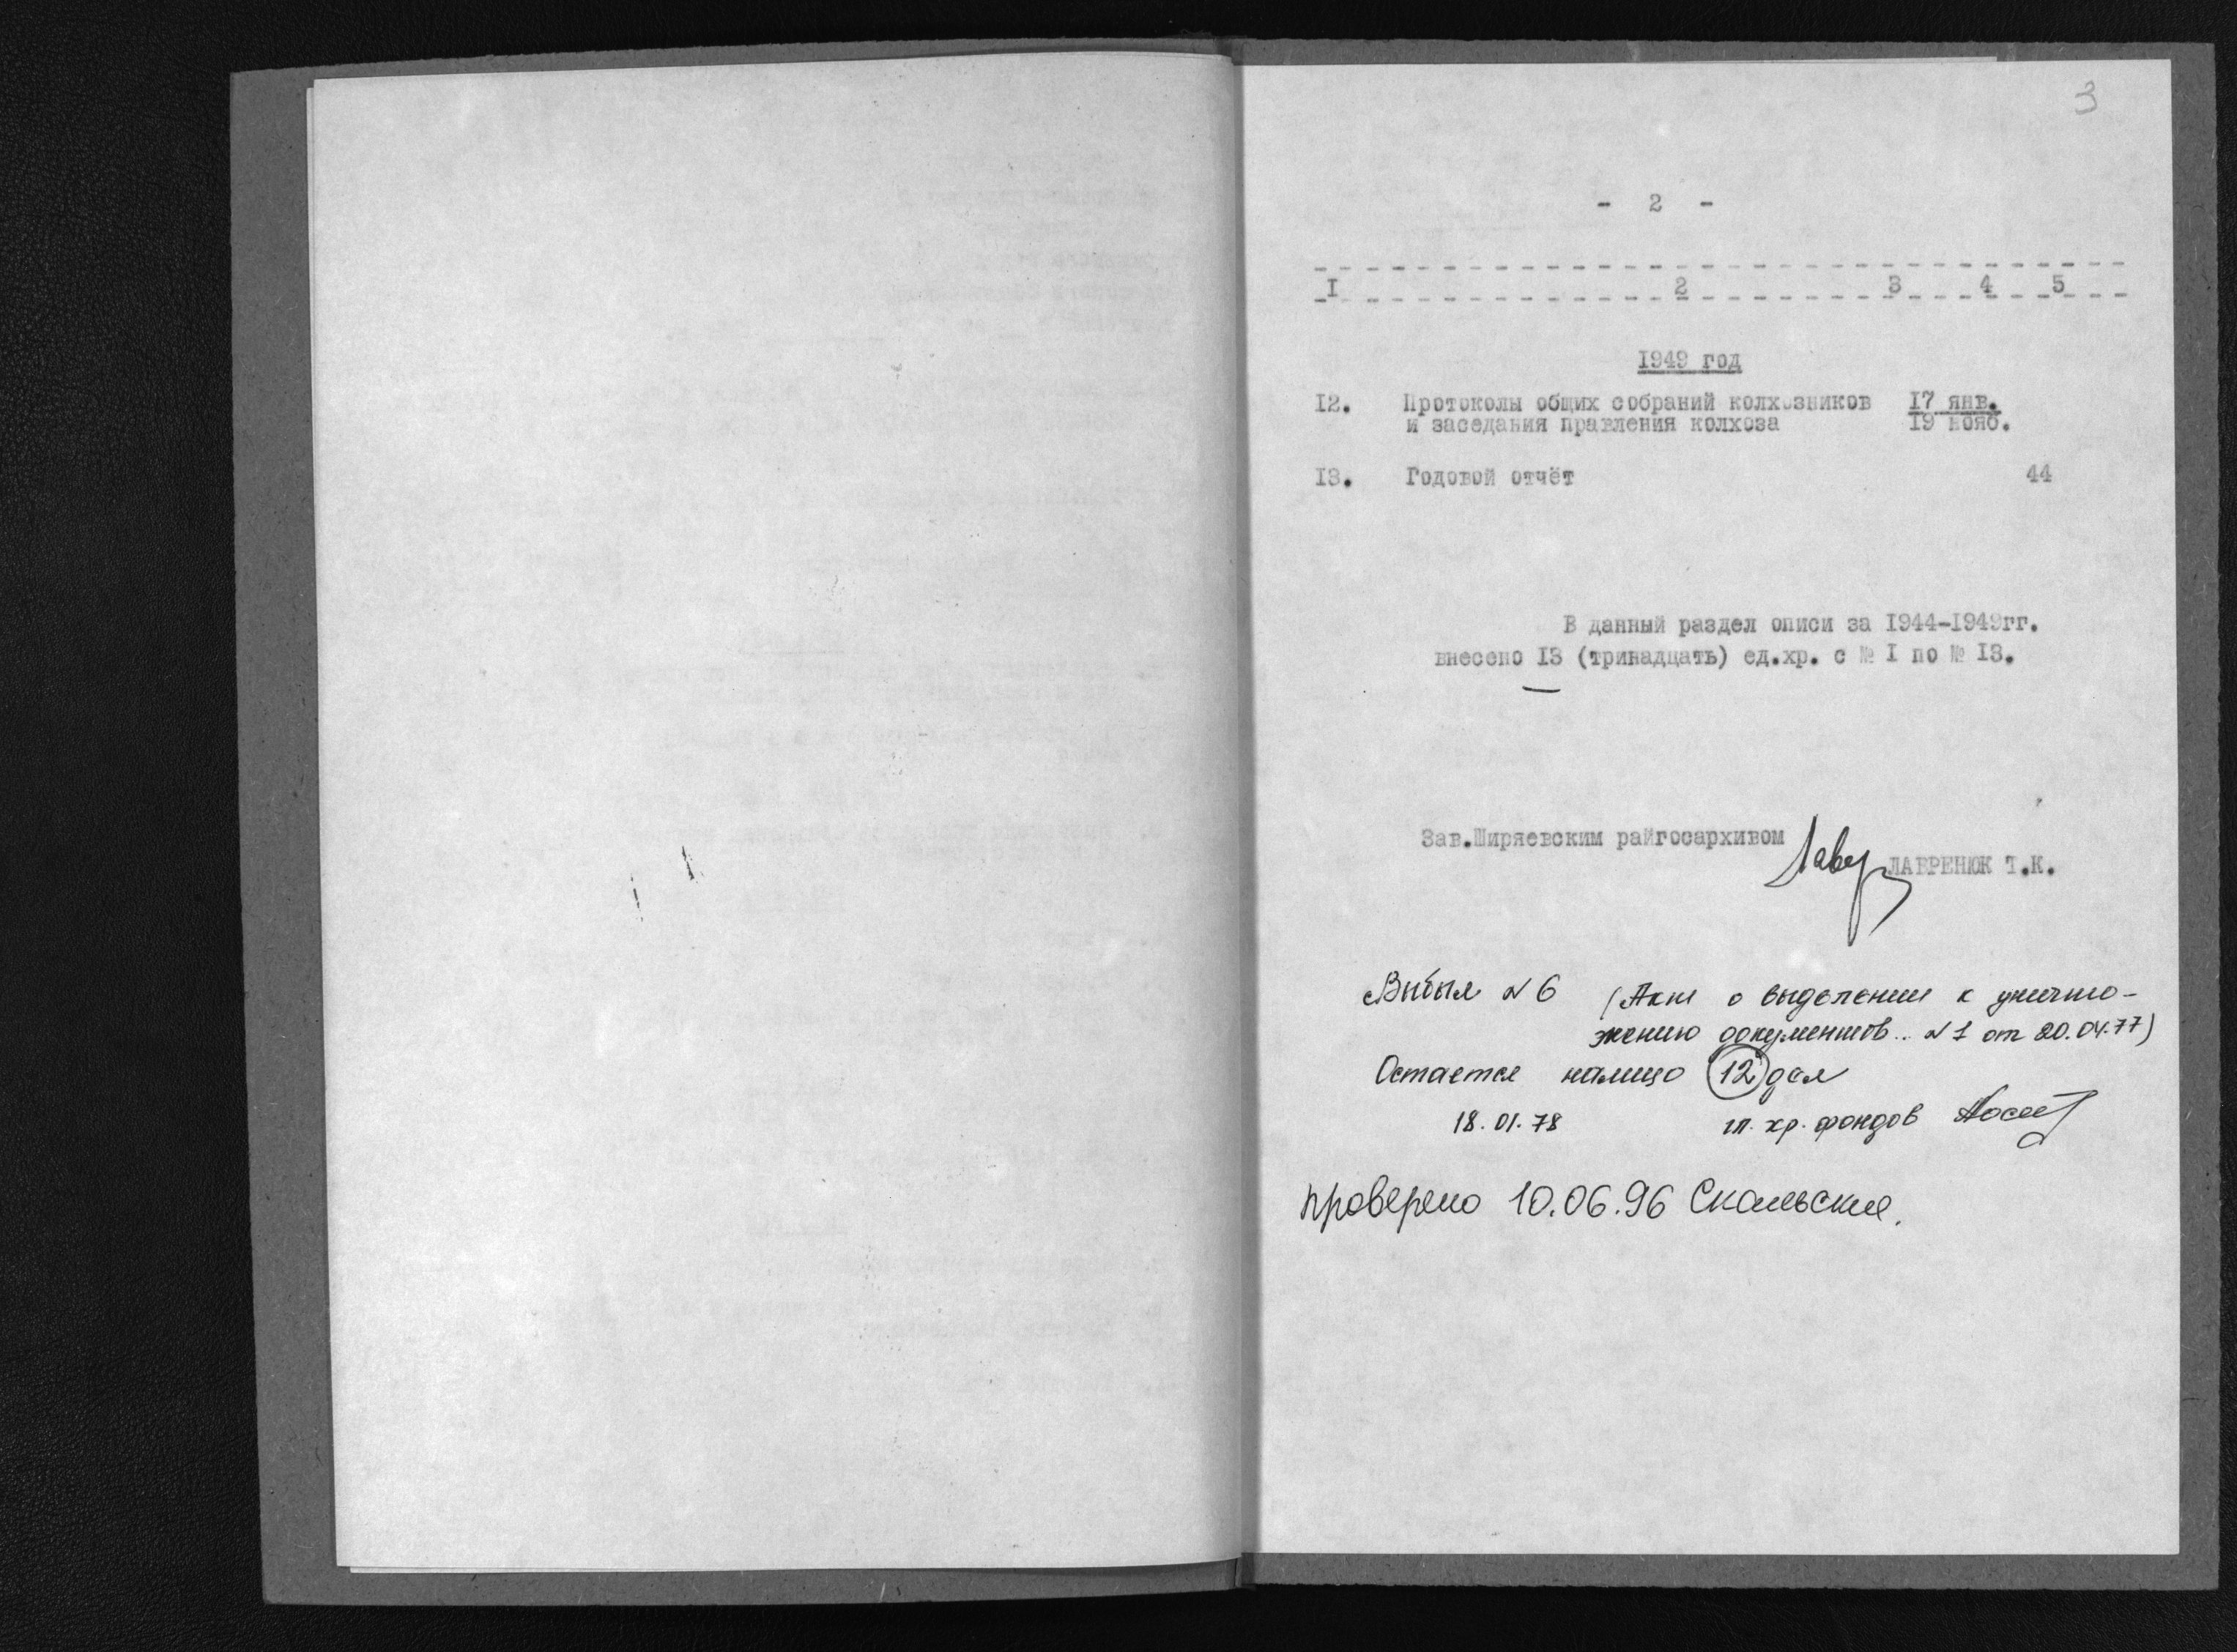 3
- 2 -
I 2 3 4 5
1949 год
12. Протоколы общих собраний колхозников 17 янв.
и заседания правления колхоза 19 нояб.
13. Годовой отчёт 44
В данный раздел описи за 1944-1949гг.
внесено 13 (тринадцать) ед.хр. с № I по № 13.
Зав.Ширяевским райгосархивом
ЛАВРЕНЮК Т.К.
Выбыл № 6 (Акт о выделении к уничто-
жению документов.. № 1 от 20.04.77)
Остается налицо 12 дел
18.01.78 гл. хр. фондов
проверено 10.06.96